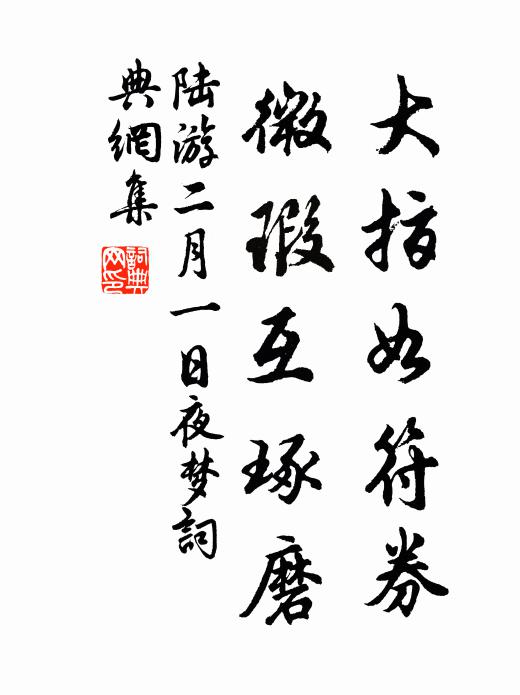 大指如符券
微瑕互琢磨
陆游二月一日夜梦詞
典網集
詞典网印